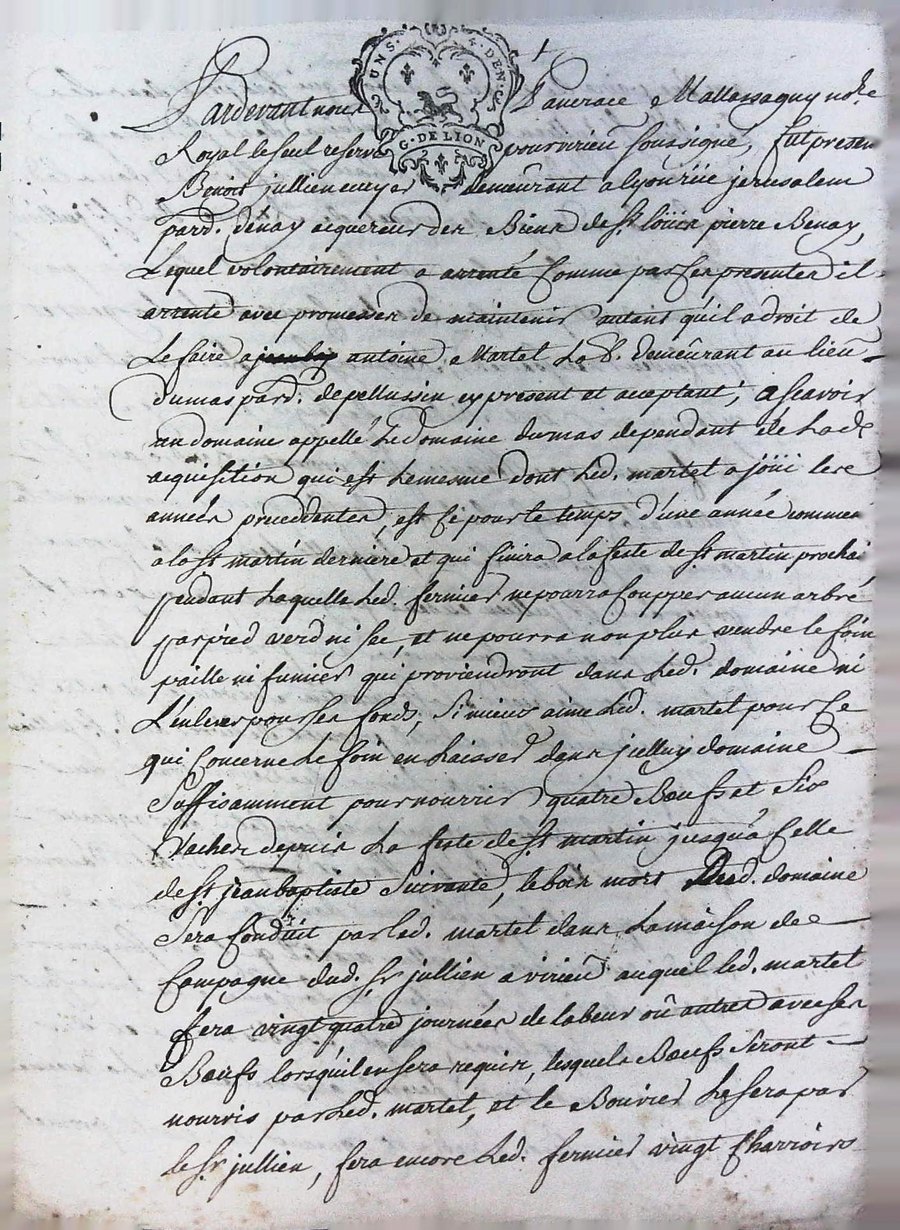 UNS. 4. DEN.
G. DE LION
Pardevant nous Mallassagny no.re
Royal le seul reservé pour virieu soussigné, fut presen
Benoit jullien ecuyer demeurant a lyon rüe jerusalem
par.d d'enay acquereur des Biens de S.r loüis pierre Benay,
Lequel volontairement a arrenté Comme par Ces presentes il
arrente avec promesses de maintenir autant qu'il a droit de
Le faire a antoine Martel La.b. demeurant au lieu
du mas par.d de pellussin cy present et aceptant, a scavoir
un domaine appellé Le domaine du mas dependant de Lad.
acquisition qui est Le mesme dont Led. martel a joüi les
années precedentes, est Ce pour le temps d'une année commen
a la S.t martin derniere et qui finira a la feste de S.t martin prochai
pendant Laquelle Led. fermier ne pourra Coupper aucun arbre
par pied verd ni sec, et ne pourra non plus vendre le foin
paille ni fumier qui proviendront dans Led. domaine ni
L'enlever pour ses fonds, Si mieux aime Led. martel pour Ce
qui Concerne Le foin en Laisser dans jcelluy domaine
Suffisamment pour nourrir quatre Bœufs et Six
Vaches depuis La feste de S.t martin jusqu'a Celle
de S.t jean baptiste Suivante, le bois mort Dud. domaine
Sera Conduit par led. martel dans La maison de
Campagne dud. S.r jullien a virieu auquel led. martel
fera vingt quatre journées de labeur oû autres avec ses
Bœufs lorsqu'il en sera requis, lesquels Bœufs Seront
nourris par Led. martel, et le Bouvier Le sera par
le S.r jullien, fera encore Led. fermier vingt Charrois